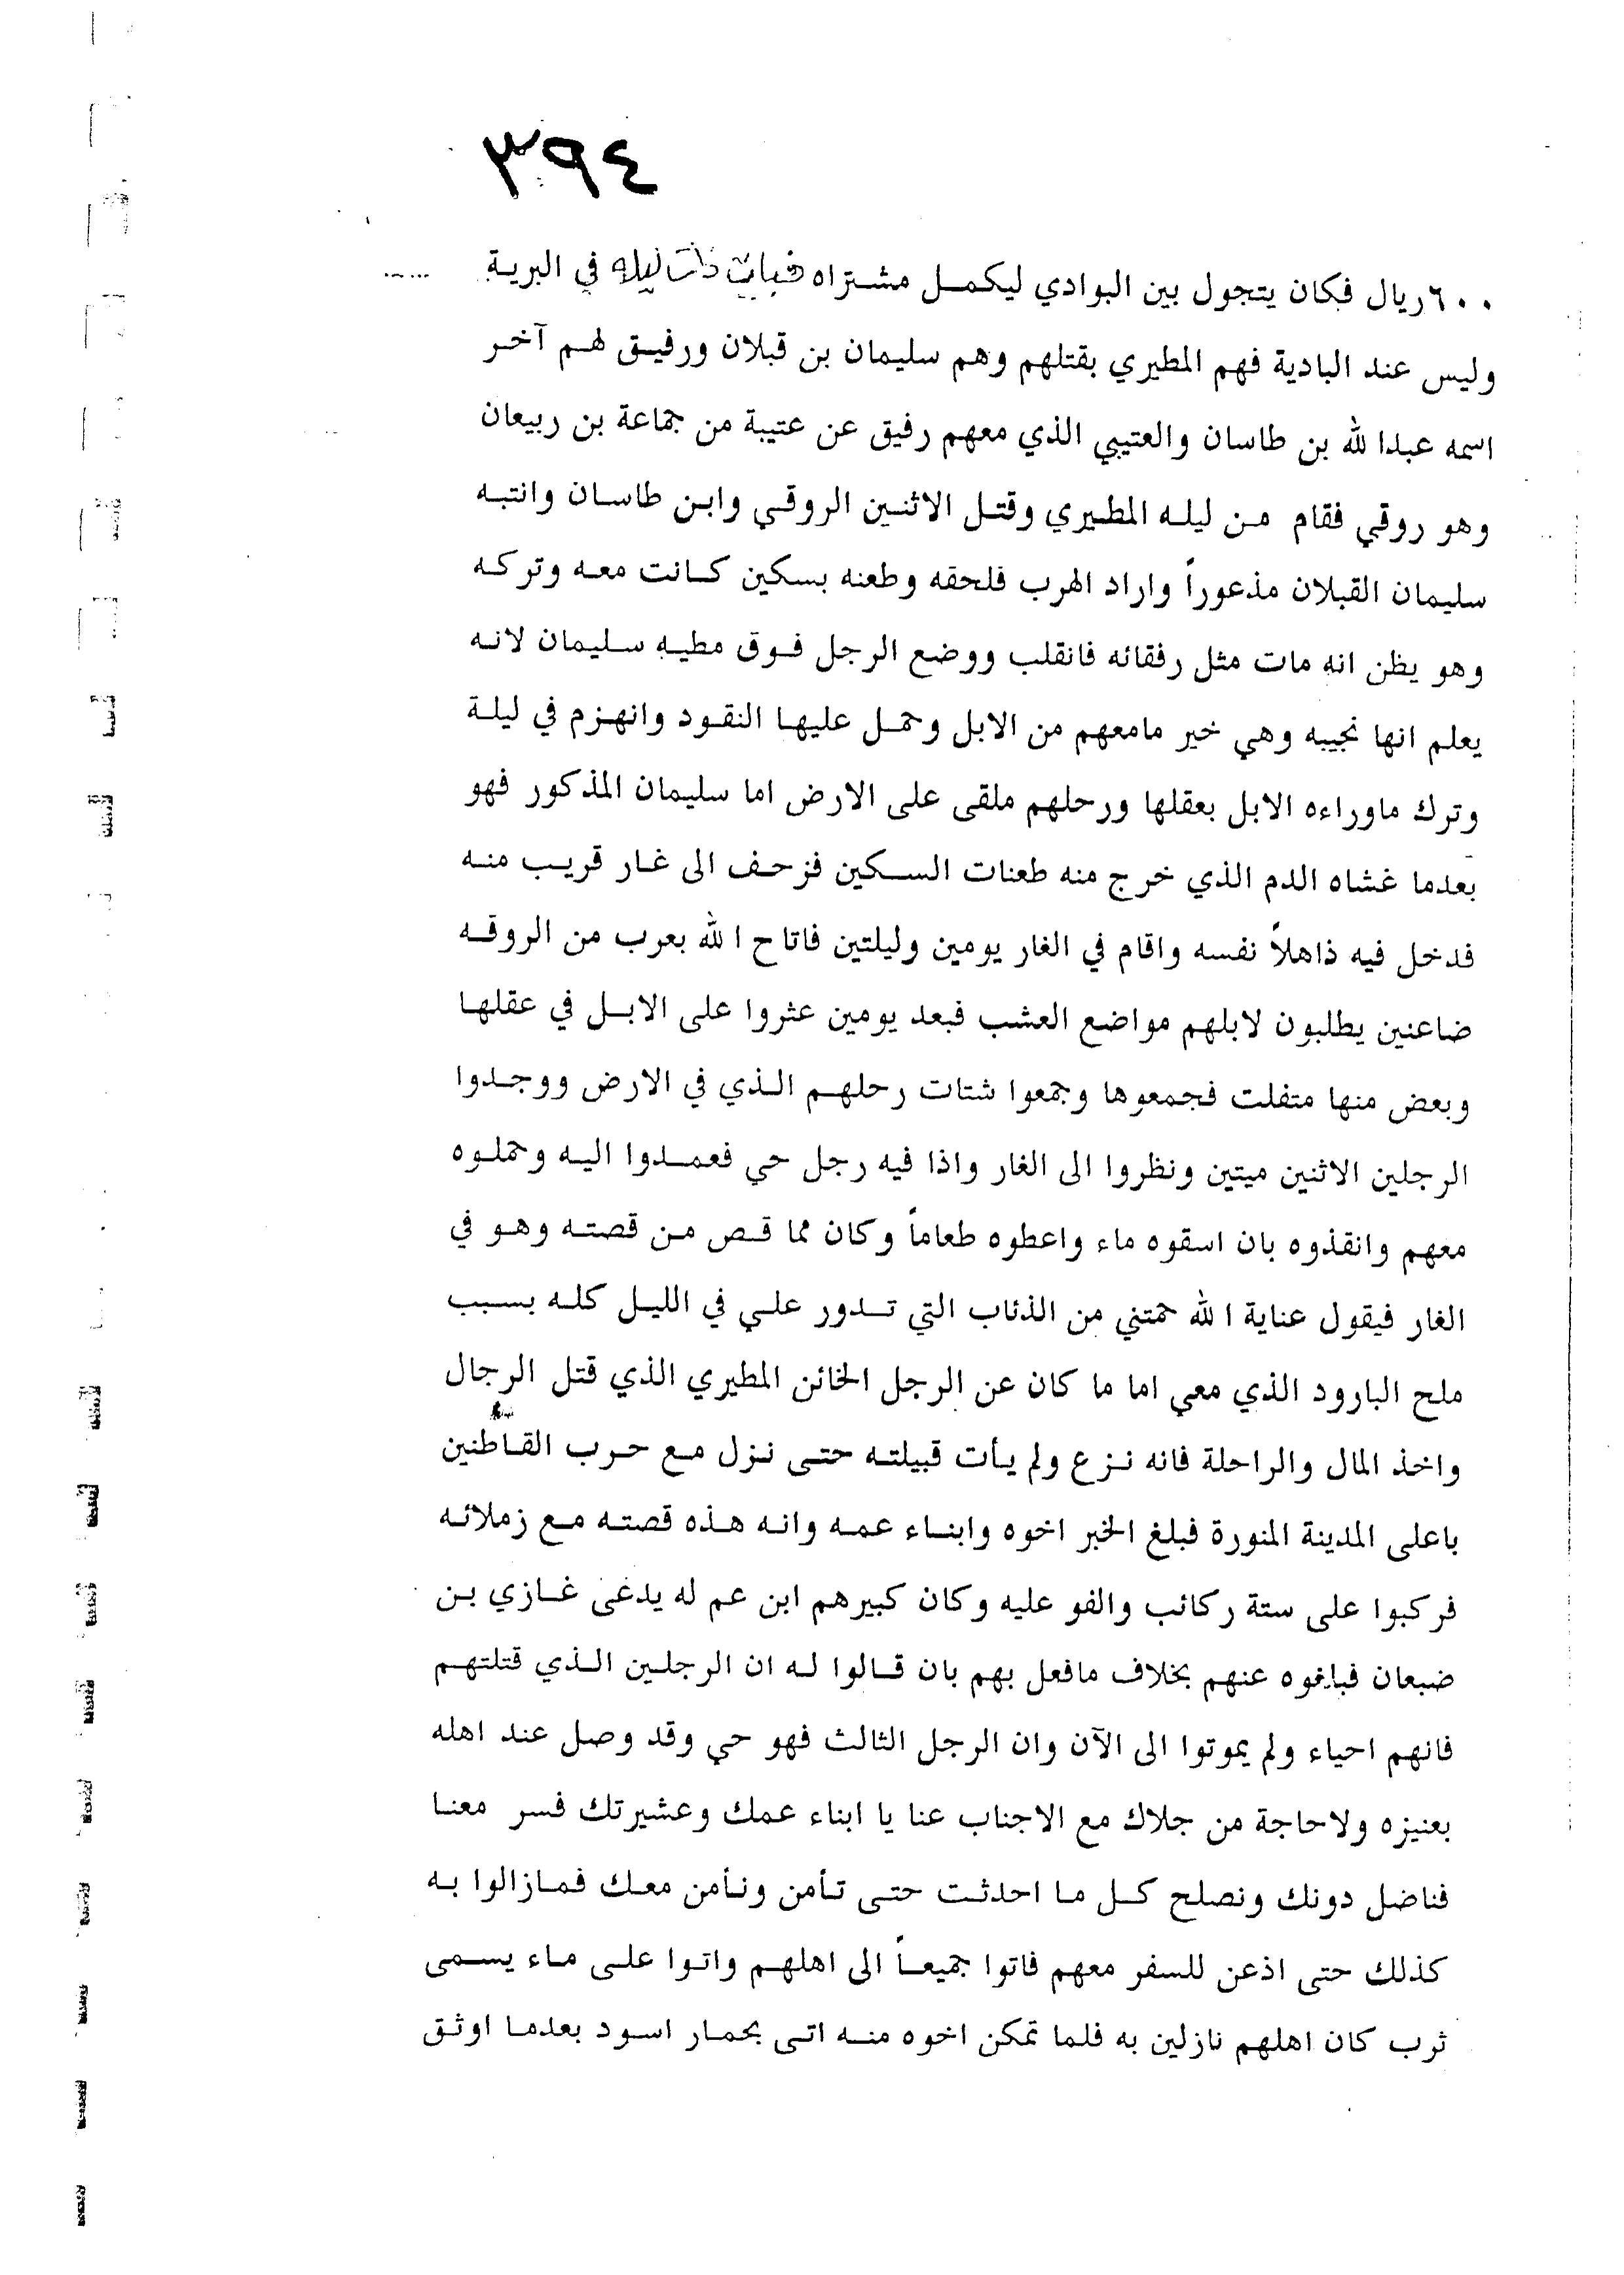 ٣٩٤
٦٠٠ ريال فكان يتجول بين البوادي ليكمل مشتراه فبات ذات ليله في البرية
وليس عند البادية فهم المطيري بقتلهم وهم سليمان بن قبلان ورفيق لهم آخر
اسمه عبدا لله بن طاسان والعتيبي الذي معهم رفيق عن عتيبة من جماعة بن ربيعان
وهو روقي فقام من ليله المطيري وقتل الاثنين الروقي وابن طاسان وانتبه
سليمان القبلان مذعوراً واراد الهرب فلحقه وطعنه بسكين كانت معه وتركه
وهو يظن انه مات مثل رفقائه فانقلب ووضع الرجل فوق مطيه سليمان لانه
يعلم انها نجيبه وهي خير مامعهم من الابل وحمل عليها النقود وانهزم في ليلة
وترك ماوراءه الابل بعقلها ورحلهم ملقى على الارض اما سليمان المذكور فهو
بعدما غشاه الدم الذي خرج منه طعنات السكين فزحف الى غار قريب منه
فدخل فيه ذاهلاً نفسه واقام في الغار يومين وليلتين فاتاح ا لله بعرب من الروقه
ضاعنين يطلبون لابلهم مواضع العشب فبعد يومين عثروا على الابل في عقلها
وبعض منها متفلت فجمعوها وجمعوا شتات رحلهم الذي في الارض ووجدوا
الرجلين الاثنين ميتين ونظروا الى الغار واذا فيه رجل حي فعمدوا اليه وحملوه
معهم وانقذوه بان اسقوه ماء واعطوه طعاماً وكان مما قص من قصته وهو في
الغار فيقول عناية ا لله حمتني من الذئاب التي تدور علي في الليل كله بسبب
ملح البارود الذي معي اما ما كان عن الرجل الخائن المطيري الذي قتل الرجال
واخذ المال والراحلة فانه نزع ولم يأت قبيلته حتى نزل مع حرب القاطنين
باعلى المدينة المنورة فبلغ الخبر اخوه وابناء عمه وانه هذه قصته مع زملائه
فركبوا على ستة ركائب والفو عليه وكان كبيرهم ابن عم له يدعى غازي بن
ضبعان فبلغوه عنهم بخلاف مافعل بهم بان قالوا له ان الرجلين الذي قتلتهم
فانهم احياء ولم يموتوا الى الآن وان الرجل الثالث فهو حي وقد وصل عند اهله
بعنيزه ولاحاجة من جلاك مع الاجناب عنا يا ابناء عمك وعشيرتك فسر معنا
فناضل دونك ونصلح كل ما احدثت حتى تأمن ونأمن معك فمازالوا به
كذلك حتى اذعن للسفر معهم فاتوا جميعاً الى اهلهم واتوا على ماء يسمى
ثرب كان اهلهم نازلين به فلما تمكن اخوه منه اتى بحمار اسود بعدما اوثق